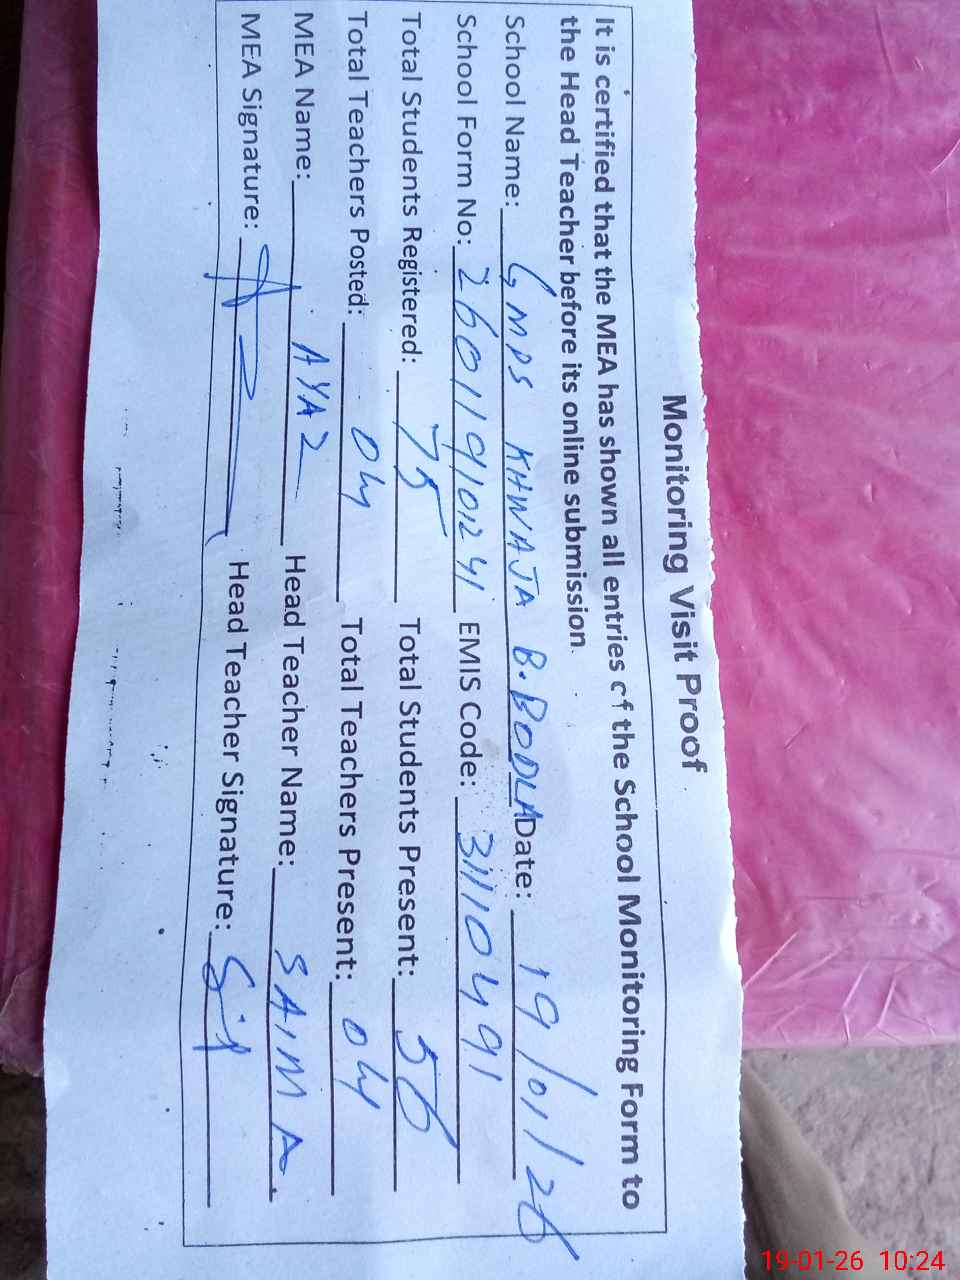 Monitoring Visit Proof
It is certified that the MEA has shown all entries of the School Monitoring Form to
the Head Teacher before its online submission.
School Name: GMPS KHWAJA B.BODLA Date: 19/01/26
School Form No: 260119101241 EMIS Code: 31110491
Total Students Registered: 75 Total Students Present: 56
Total Teachers Posted: 04 Total Teachers Present: 04
MEA Name: AYAZ Head Teacher Name: SAIMA.
MEA Signature: Head Teacher Signature:
19-01-26 10:24